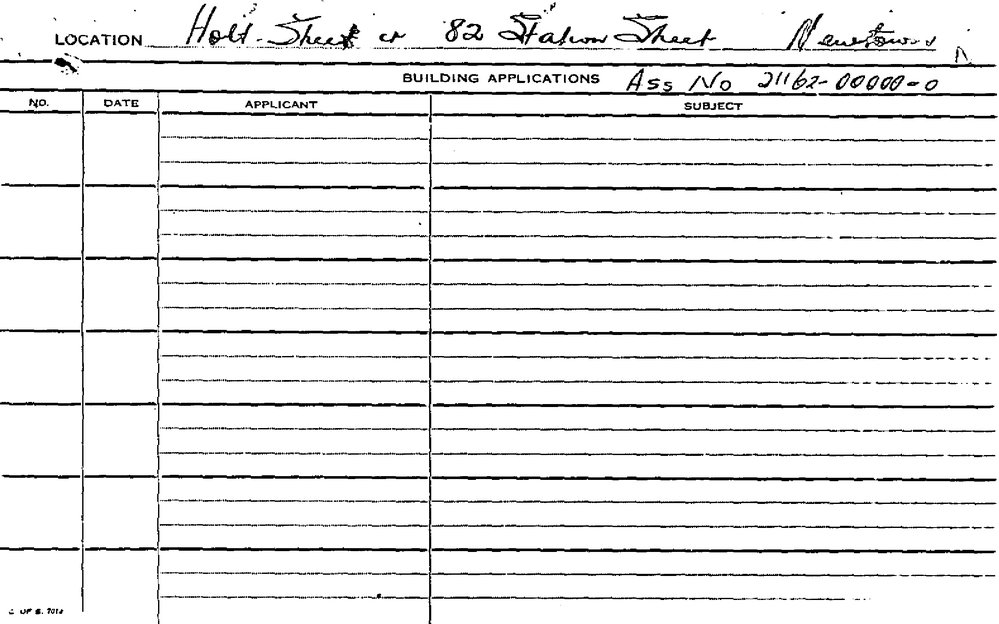 LOCATION Holt Street cr 82 Station Street Newtown
BUILDING APPLICATIONS Ass No 21162-00000-0
NO. DATE APPLICANT SUBJECT
C. OF S. 7014